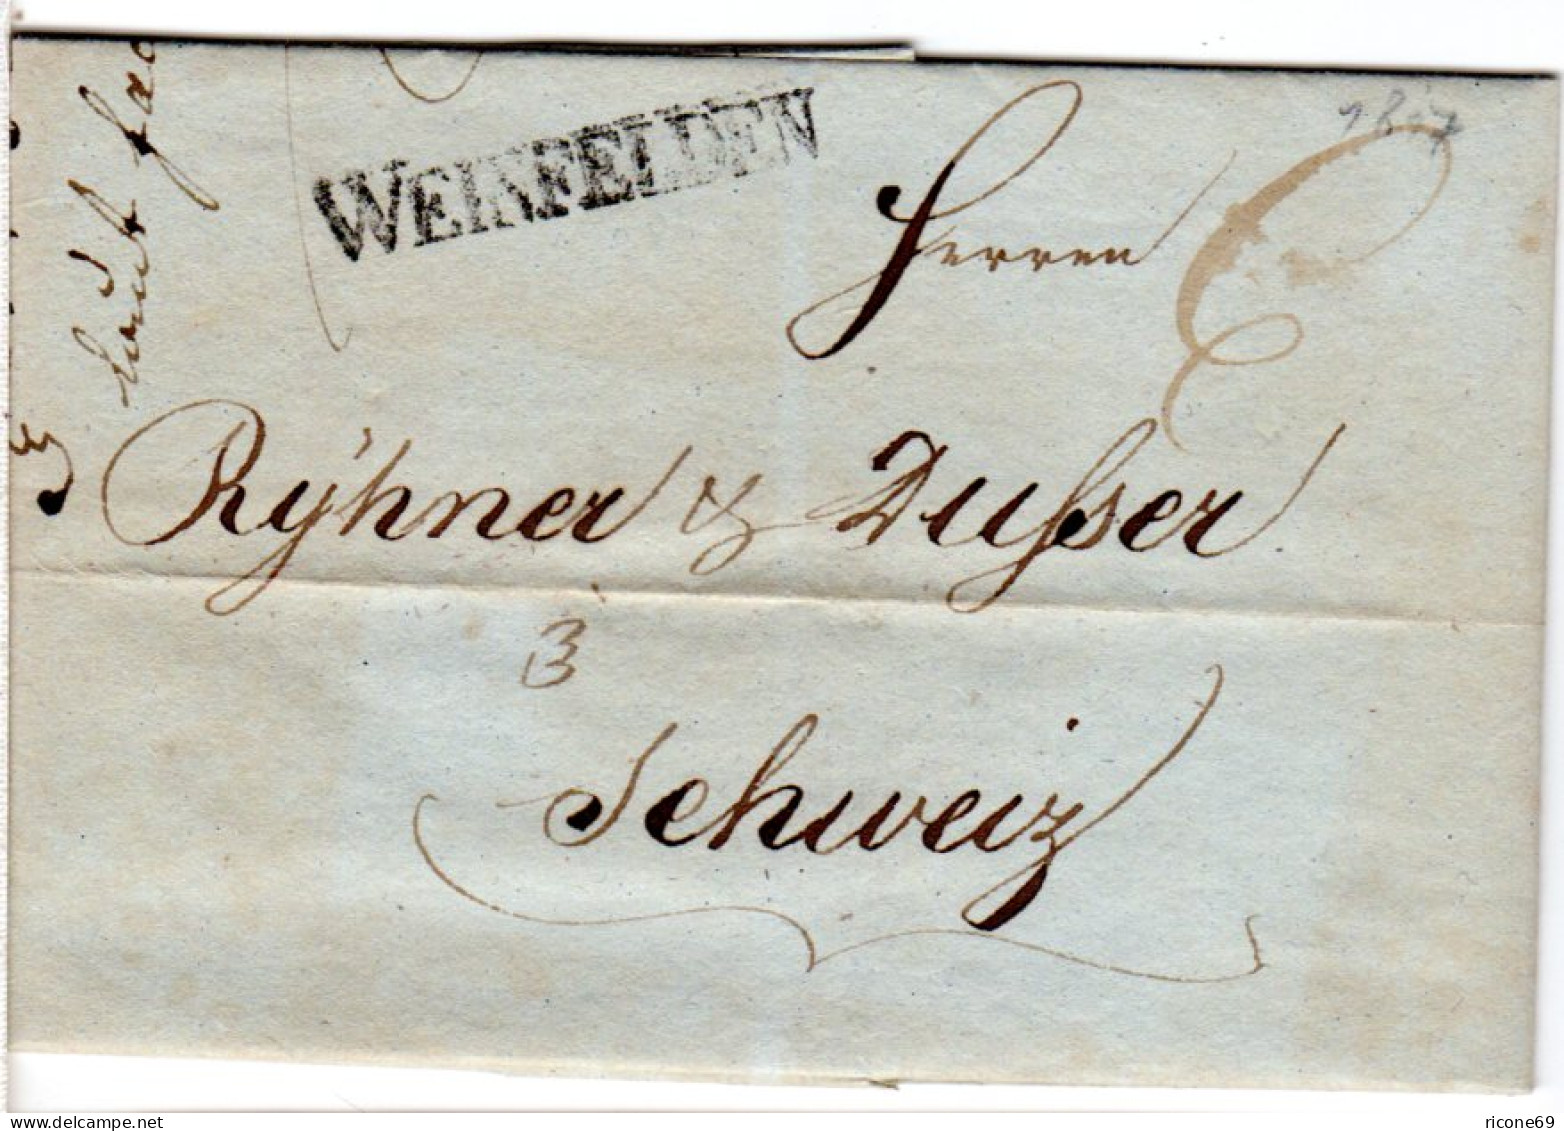 WEINFELDEN
Herren
Rÿhner & Dußer
3
Schweiz
delcampe.net
ricone69